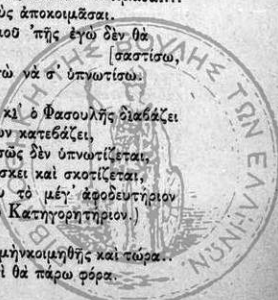 ὺς ἀποκοιμᾶσαι.
ιοῦ 'πῆς ἐγὼ δὲν θὰ
[σαστίσω,
τῶ νὰ σ' ὑπνωτίσω.
κι' ὁ Φασουλῆς διαβάζει
ων κατεβάζει,
σῶς δὲν ὑπνωτίζεται,
σκει καὶ σκοτίζεται,
υ τὸ μέγ' ἀφοδευτήριον
Κατηγορητήριον.)
μὴν κοιμηθῆς καὶ τώρα..
ὶ θὰ πάρω φόρα.
ΒΙΒ ΤΗΣ ΒΟΥΛΗΣ ΤΩΝ ΕΛΛΗΝΩΝ